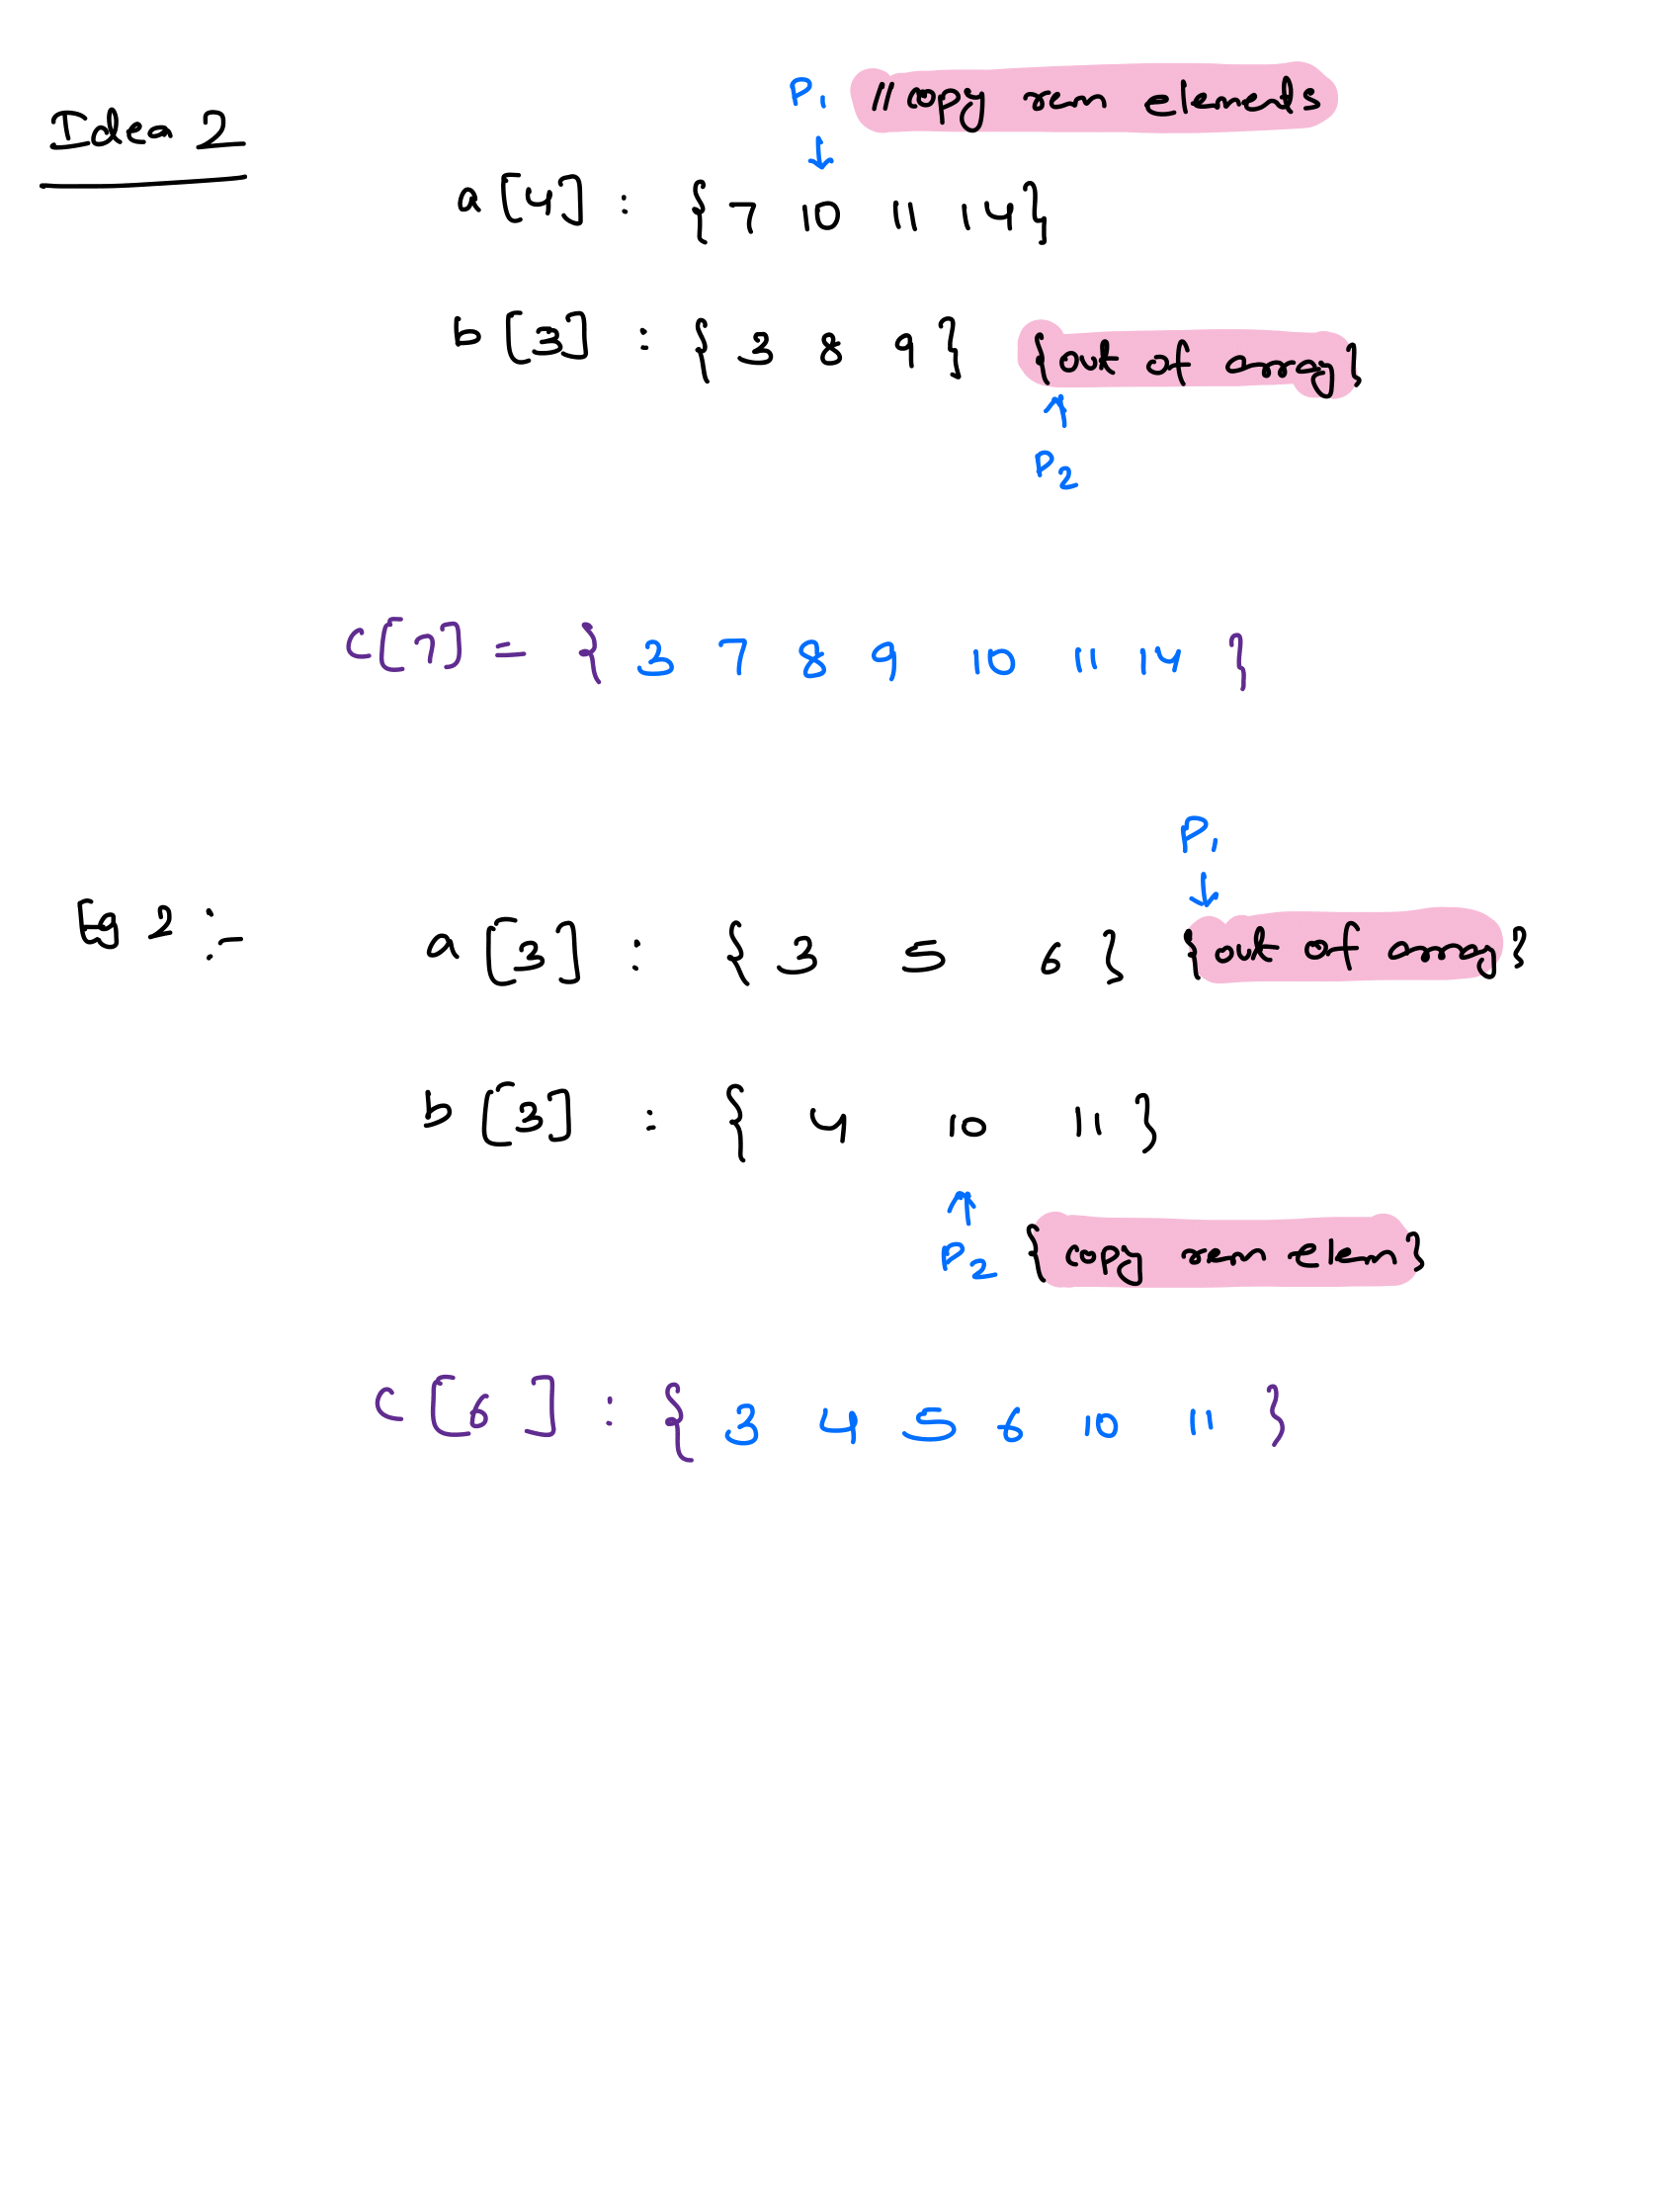 Idea 2
P1 //copy rem elements
a[4] : { 7 10 11 14}
b[3] : { 3 8 9 } {out of array}
P2
C[7] = { 3 7 8 9 10 11 14 }
P1
Eg 2 :- a[3] : { 3 5 6 } {out of array}
b[3] : { 4 10 11 }
P2 {copy rem elem}
C[6] : { 3 4 5 6 10 11 }